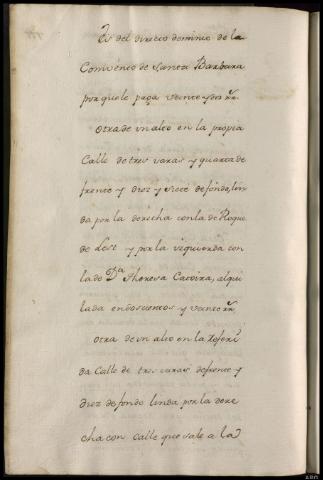 Es del directo dominio de la
Convento de Santa Barbara
por que le paga veinte y dos rr.ˢ
Otra de un alto en la propia
Calle de tres varas y quarta de
frente y diez y siete de fondo, lin
da por la derecha con la de Roque
de Lest y por la izquierda con
la de D.ª Theresa Caveira, alqui
lada en doscientos y veinte rr.ˢ
Otra de un alto en la referi
da Calle de tres varas de frente y
diez de fondo linda por la dere
cha con calle que sale a la